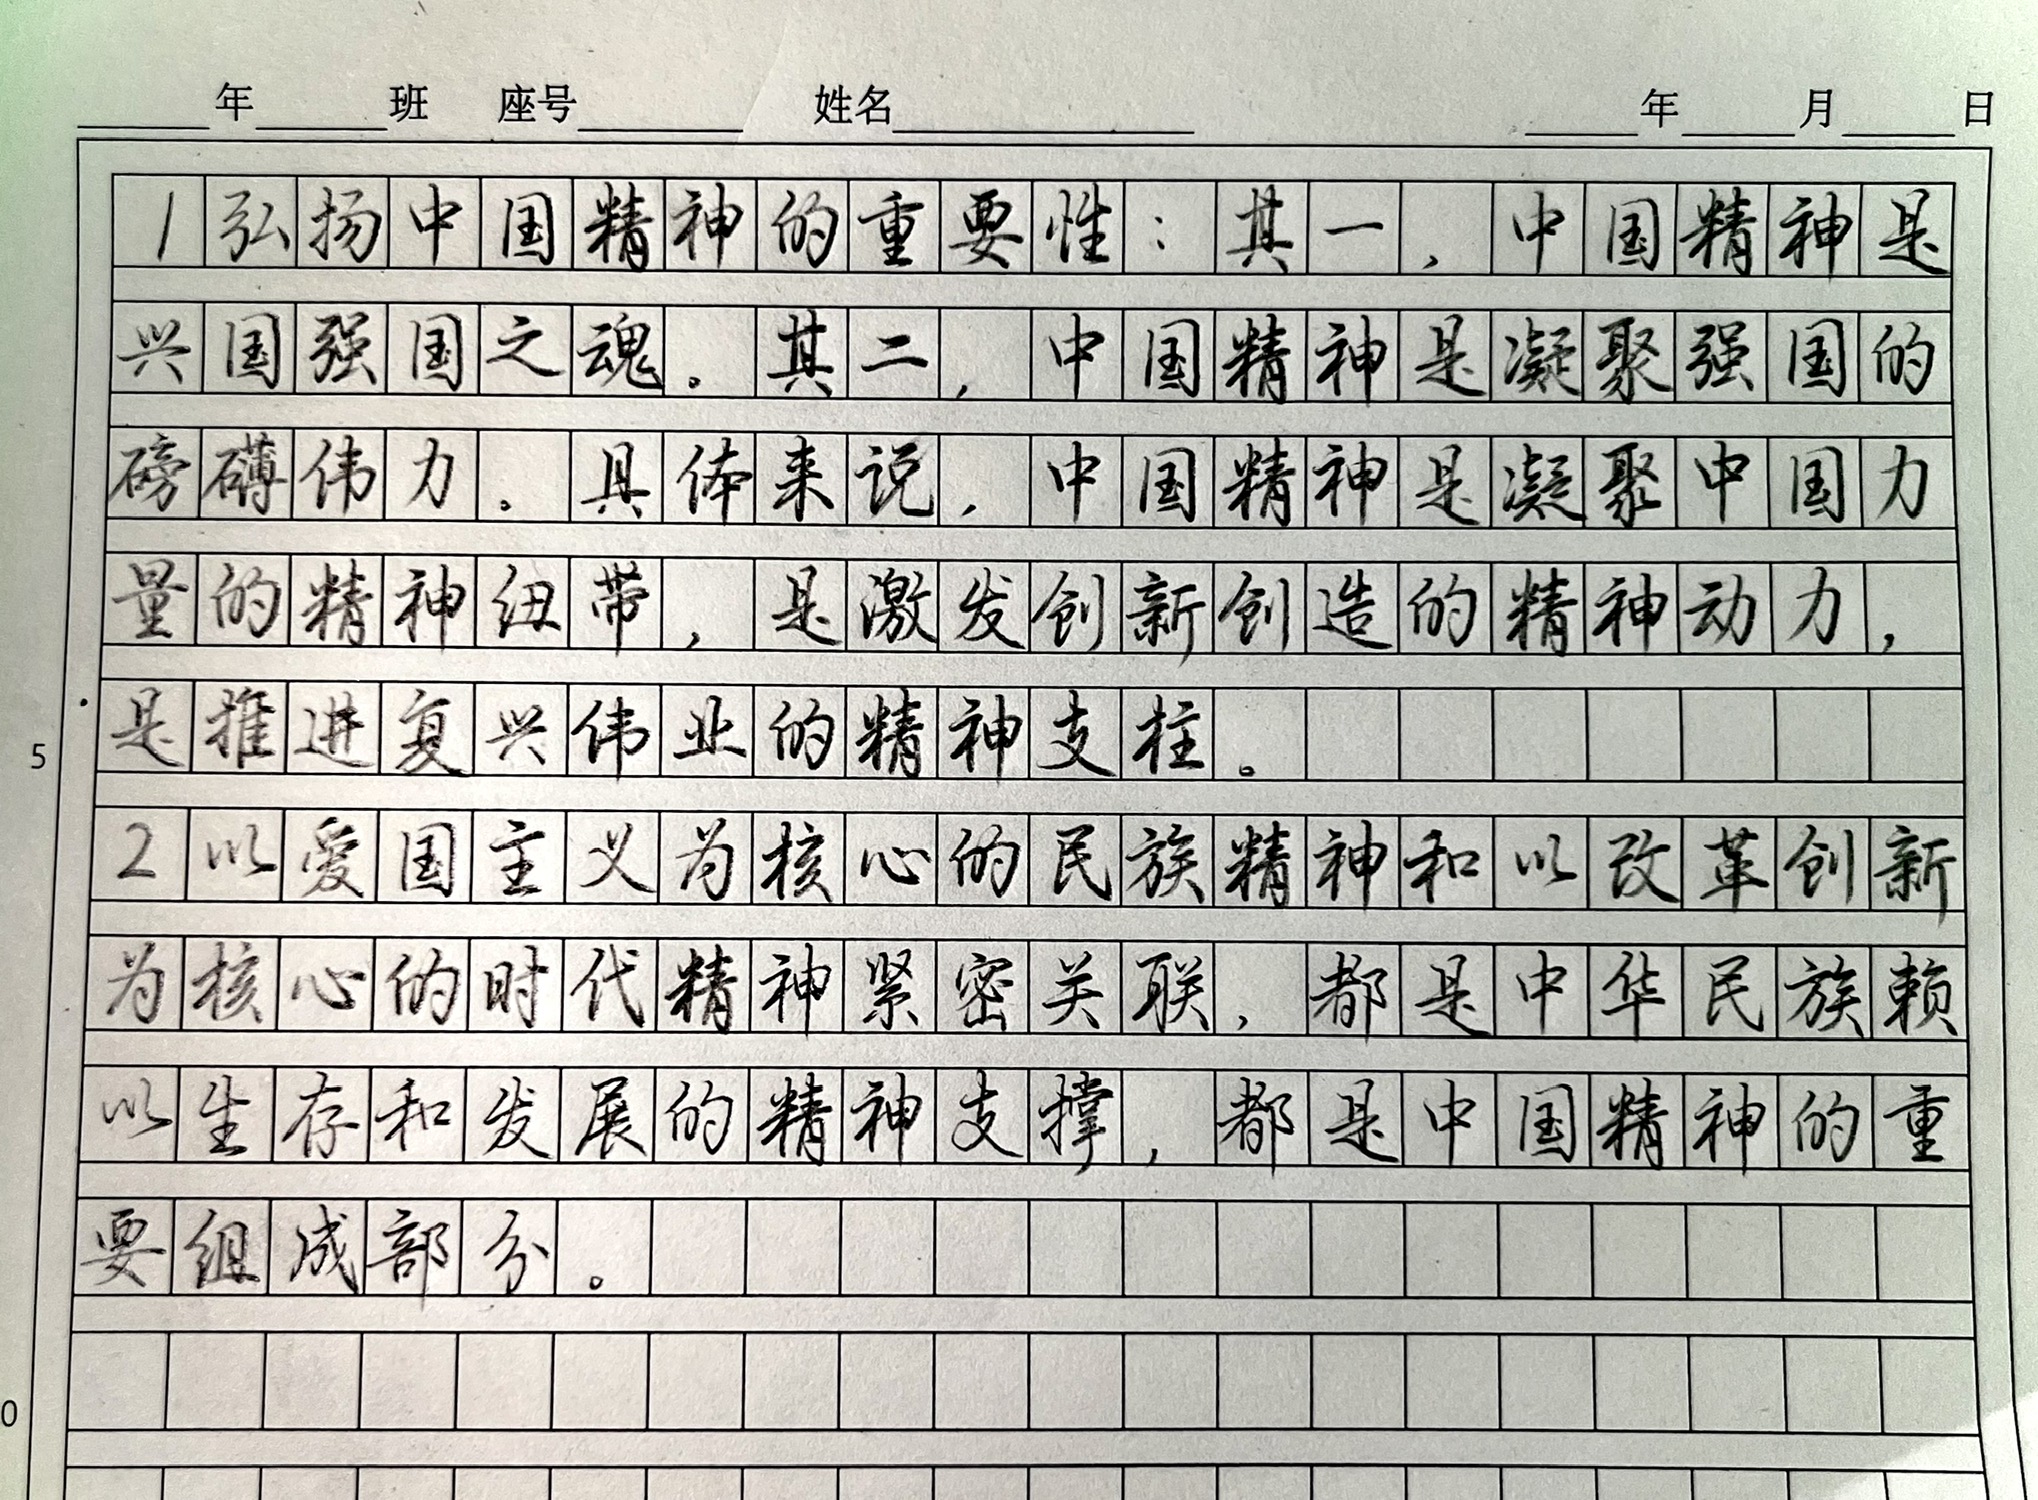 年 班 座号 姓名 年 月 日
1弘扬中国精神的重要性：其一，中国精神是
兴国强国之魂。其二，中国精神是凝聚强国的
磅礴伟力。具体来说，中国精神是凝聚中国力
量的精神纽带，是激发创新创造的精神动力，
是推进复兴伟业的精神支柱。
5
2以爱国主义为核心的民族精神和以改革创新
为核心的时代精神紧密关联，都是中华民族赖
以生存和发展的精神支撑，都是中国精神的重
要组成部分。
0